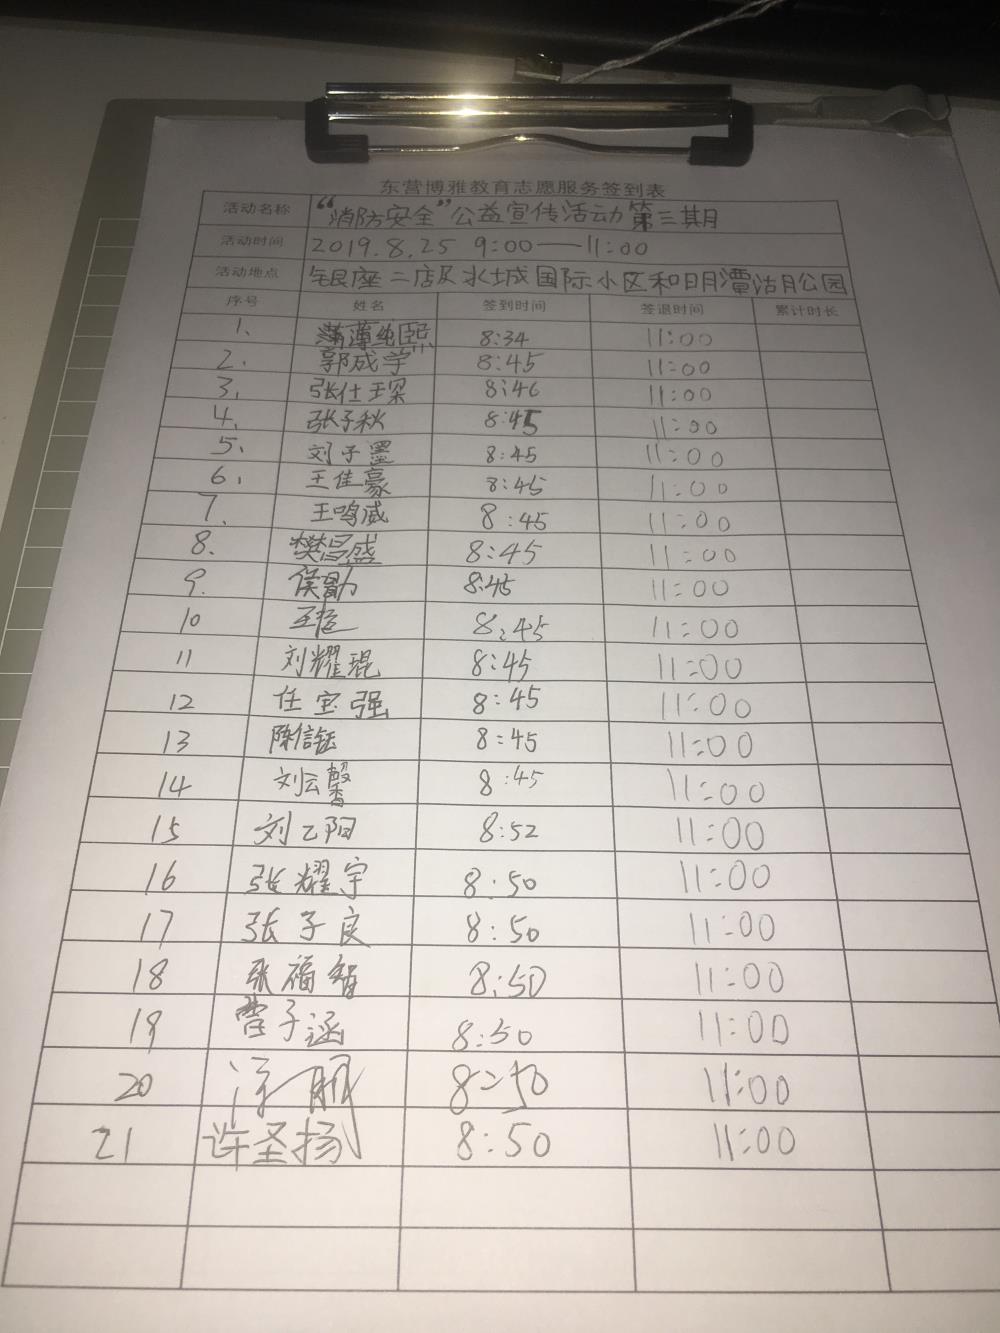 东营博雅教育志愿服务签到表
活动名称 “消防安全”公益宣传活动第三期
活动时间 2019.8.25 9:00——11:00
活动地点 银座二店及水城国际小区和明月潭湖公园
序号 姓名 签到时间 签退时间 累计时长
1. 薄纯熙 8:34 11:00
2. 郭成学 8:45 11:00
3. 张仕琛 8:46 11:00
4. 张子秋 8:45 11:00
5. 刘子墨 8:45 11:00
6. 王佳豪 8:45 11:00
7. 王鸣威 8:45 11:00
8. 樊昌盛 8:45 11:00
9. 侯勖 8:45 11:00
10 8:45 11:00
11 刘耀琨 8:45 11:00
12 任宝强 8:45 11:00
13 陈信钰 8:45 11:00
14 刘云馨 8:45 11:00
15 刘乙阳 8:52 11:00
16 张耀宇 8:50 11:00
17 张子良 8:50 11:00
18 张福智 8:50 11:00
19 曹子涵 8:50 11:00
20 8:50 11:00
21 许圣扬 8:50 11:00